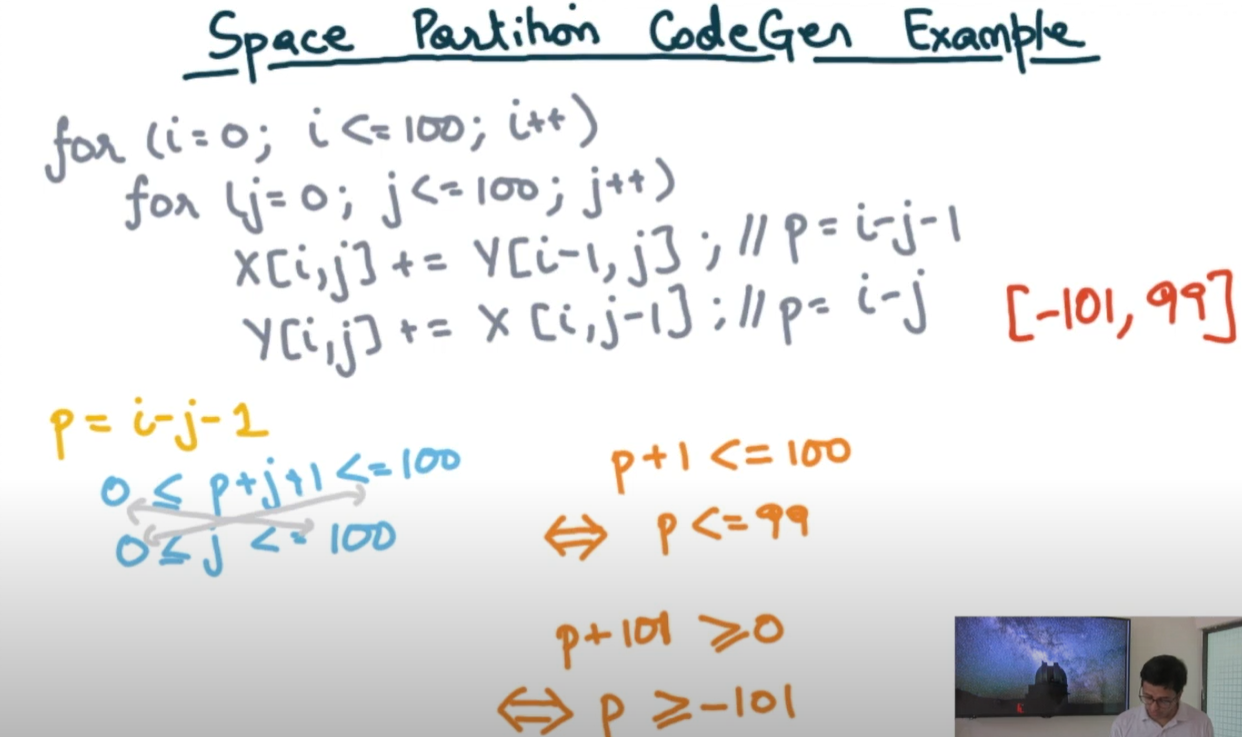 Space Partition CodeGen Example
for (i=0; i<=100; i++)
for (j=0; j<=100; j++)
X[i,j] += Y[i-1, j]; // p= i-j-1
Y[i,j] += X [i, j-1]; // p= i-j
[-101, 99]
p= i-j-1
0 ≤ p+j+1 <=100
0 ≤ j <= 100
p+1 <= 100
⇔ p <= 99
p+101 ≥ 0
⇔ p ≥ -101